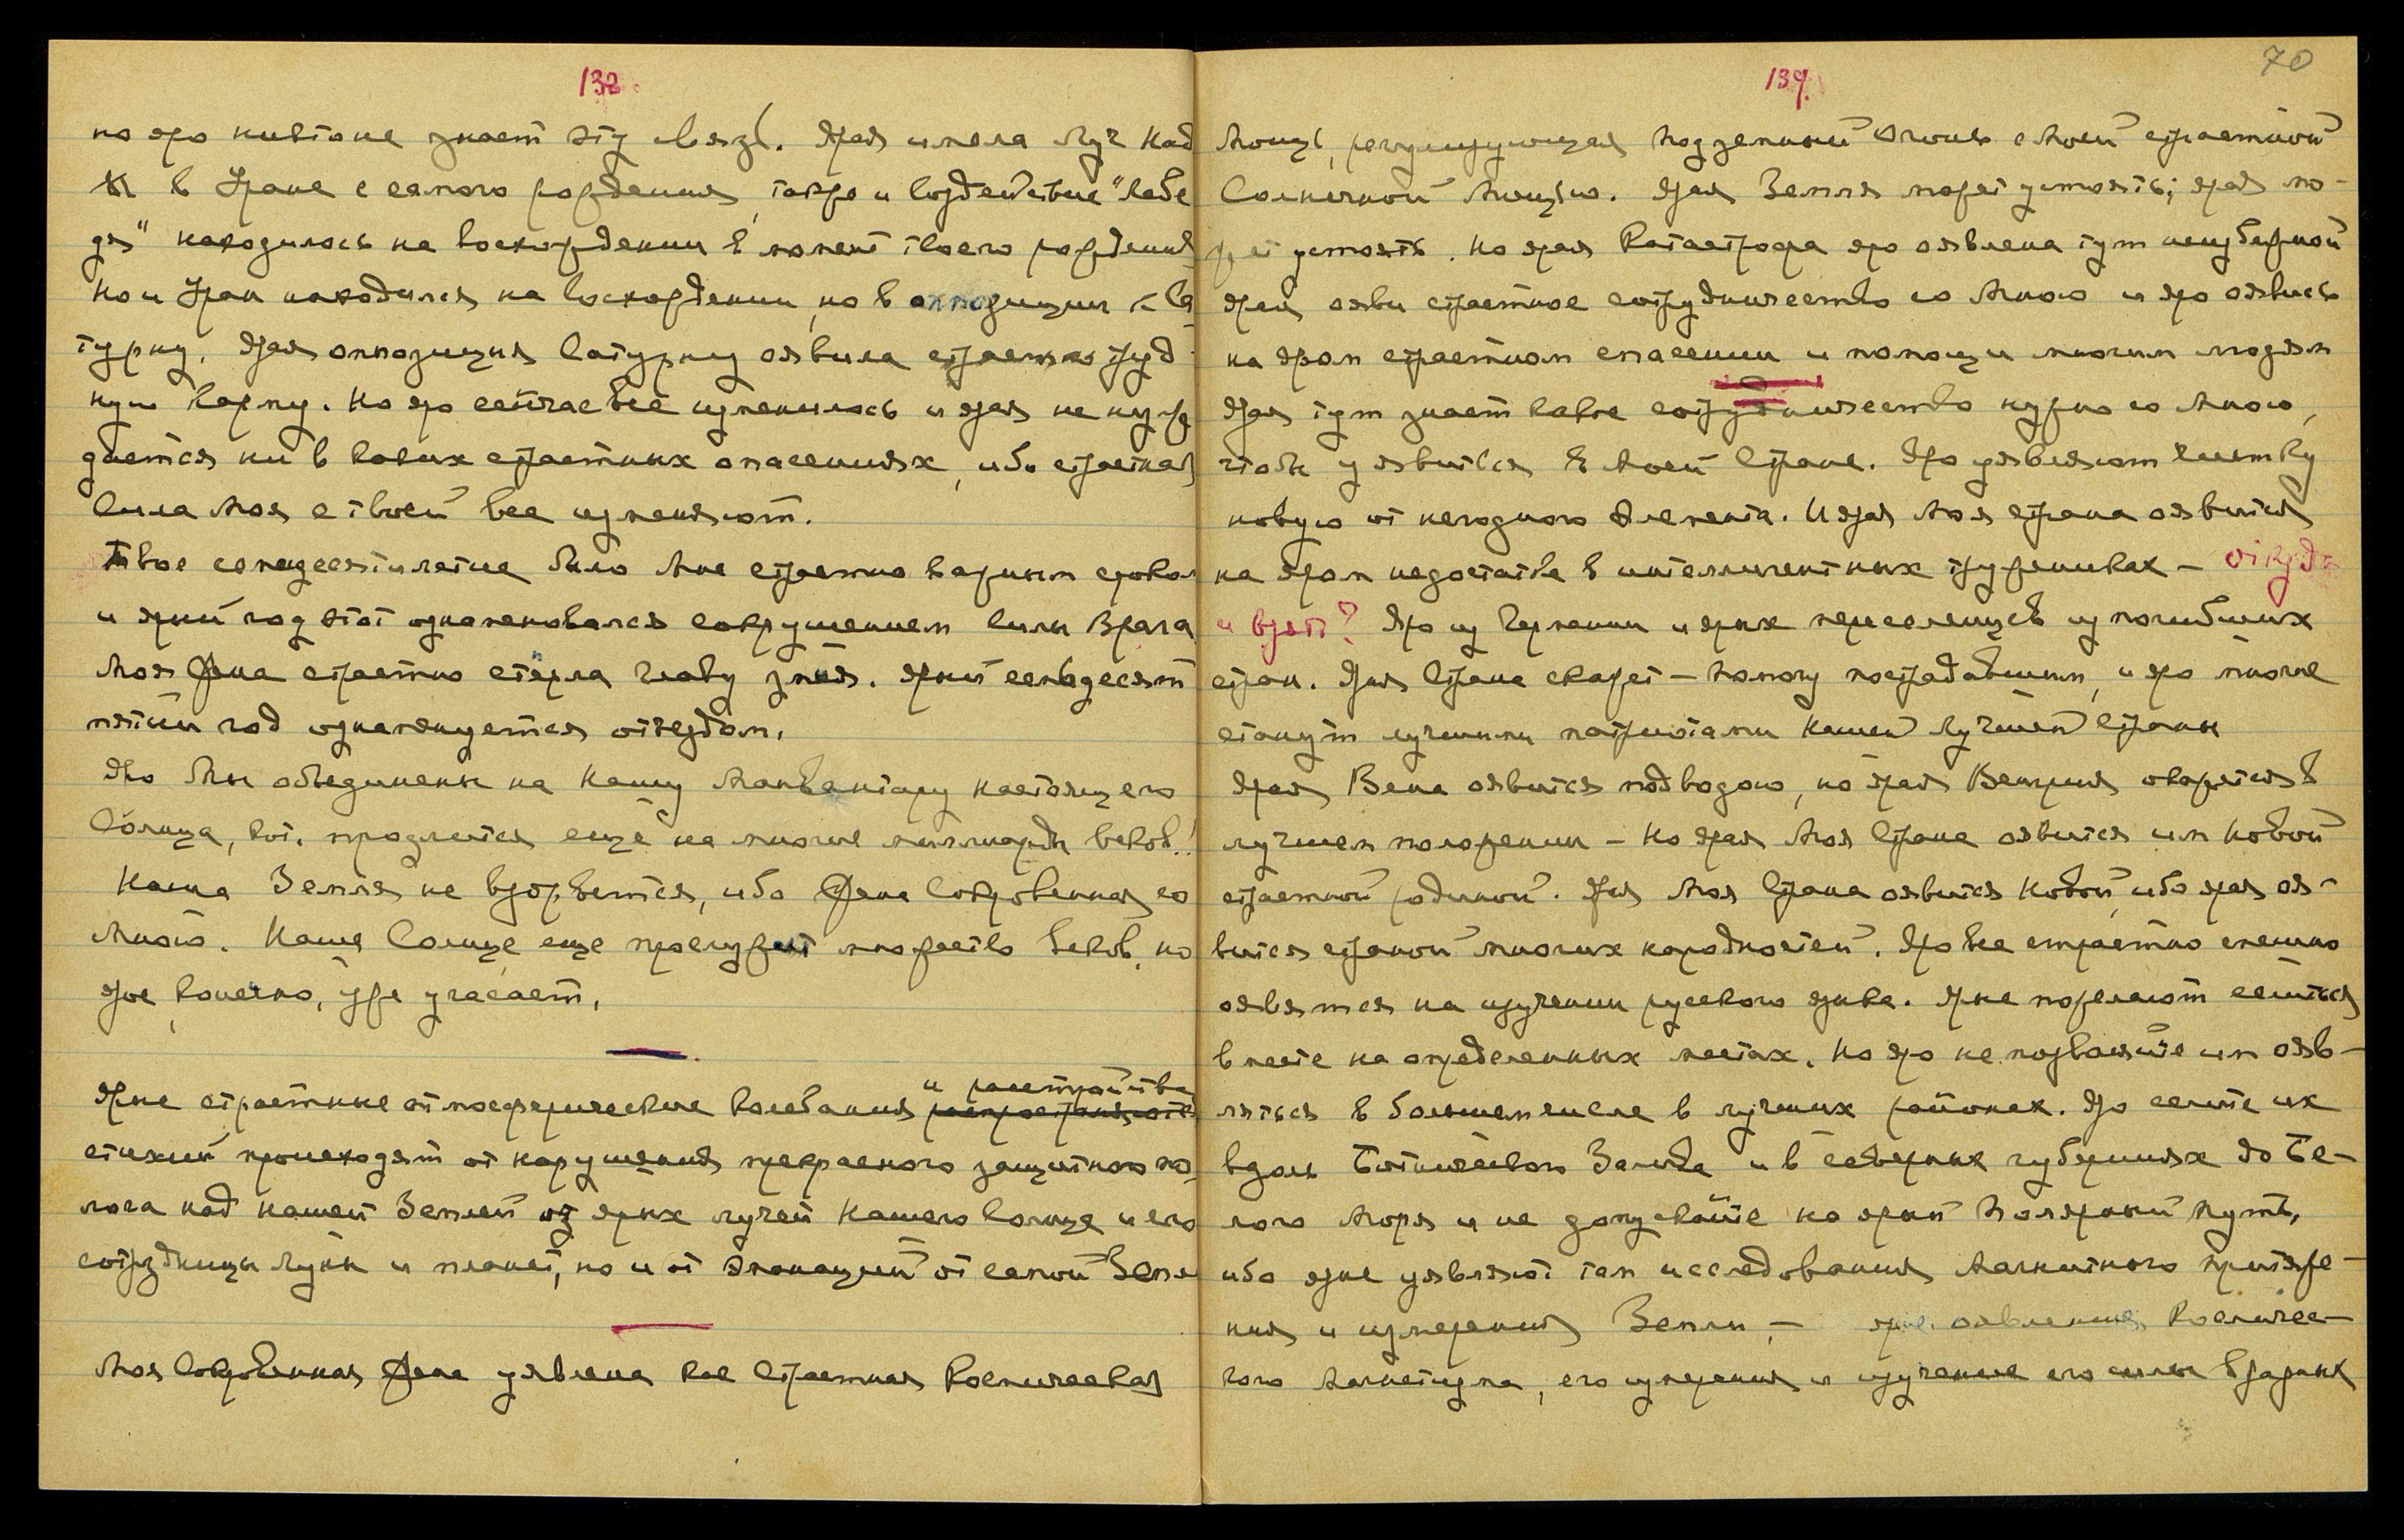 138.
но яро нивтоне знает эту связь. Ярая имела Луч Над
Ы в Уране с самого рождения, также и созвездие "Лебе
дя" находилось на восхождении в момент твоего рождения
Но и Уран находился на восхождении, но в оппозиции к Са
турну. Ярая оппозиция Сатурну оявила страстно труд
ную Карму. Но яро сейчас все изменилось и ярая не нуж
дается ни в каких страстных опасениях, ибо страстная
Сила Моя с твоей все изменяют.
Твое семидесятилетие было Мне страстно важным сроком
и ярый год этот ознаменовался сокрушением Силы Врага
Моя Жена страстно стерла главу змия. Ярый семьдесят
пятый год ознаменуется отъездом.
Яро Мы объединены на Нашу Манвантару настоящего
Солнца, кот. продлится еще на многие миллиарды веков!
Наша Земля не взорвется, ибо Жена Сокровенная со
Мною. Наше Солнце еще прослужит множество веков, но
ярое, конечно, уже угасает.
Ярые страстные атмосферические колебания и расстройства
стихий происходят от нарушения прекрасного защитного по-
лога над нашей Землей из ярых лучей Нашего Солнца и его
сотрудницы Луны и планет, но и от эманаций от самой Земли
Моя Сокровенная Жена уявлена как Страстная Космическая
70
139.
Мощь, регулирующая подземный Огонь с Моей страстной
Солнечной Мощью. Ярая Земля может устоять; ярая мо-
жет устоять. Но ярая Катастрофа яро оявлена тут неизбежной
Ярая ояви страстное сотрудничество со Мною и яро оявись
на яром страстном спасении и помощи многим людям
Ярая тут знает какое сотрудничество нужно со Мною,
чтобы уявиться в Моей Стране. Яро уявляют чистку
новую от негодного элемента. И ярая Моя страна оявится
на яром недостатке в интеллигентных тружениках – откуда
и взять? Яро из Германии и ярых переселенцев из погибших
стран. Ярая Страна скажет – помогу пострадавшим, и яро многие
станут лучшими патриотами Нашей Лучшей Страны
Ярая Вена оявится под водою, но ярая Венгрия окажется в
лучшем положении – Но ярая Моя Страна оявится им Новой
страстной родиной. Ярая Моя Страна оявится Новой, ибо ярая оя-
вится страной многих народностей. Яро все страстно спешно
оявятся на изучении русского языка. Ярые пожелают селиться
вместе на определенных местах. Но яро не позволяйте им ояв-
ляться в большем числе в лучших районах. Яро селите их
вдоль Ботнического Залива и в северных губерниях до Бе-
лого Моря и не допускайте на ярый Полярный Путь,
ибо ярые уявляют там исследования Магнитного притяже-
ния и измерения Земли, – ярые оявления Космичес-
кого Магнетизма, его измерения и изучение его силы в разных